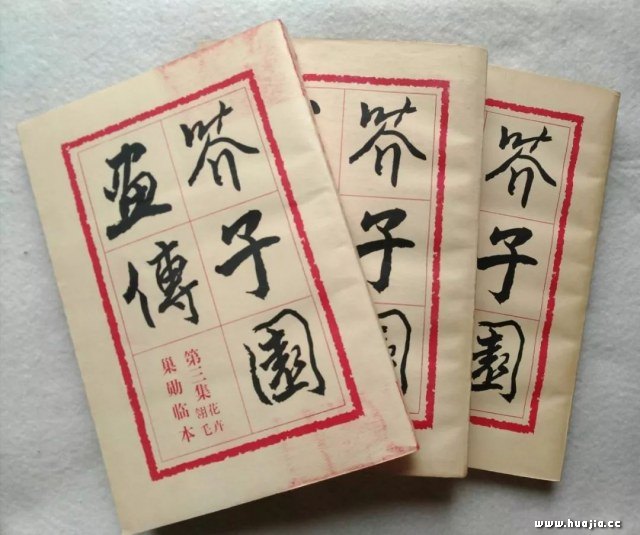 芥子園
畫傳
第三集 花卉翎毛
巢勋临本
芥子園
芥子園
www.huajia.cc